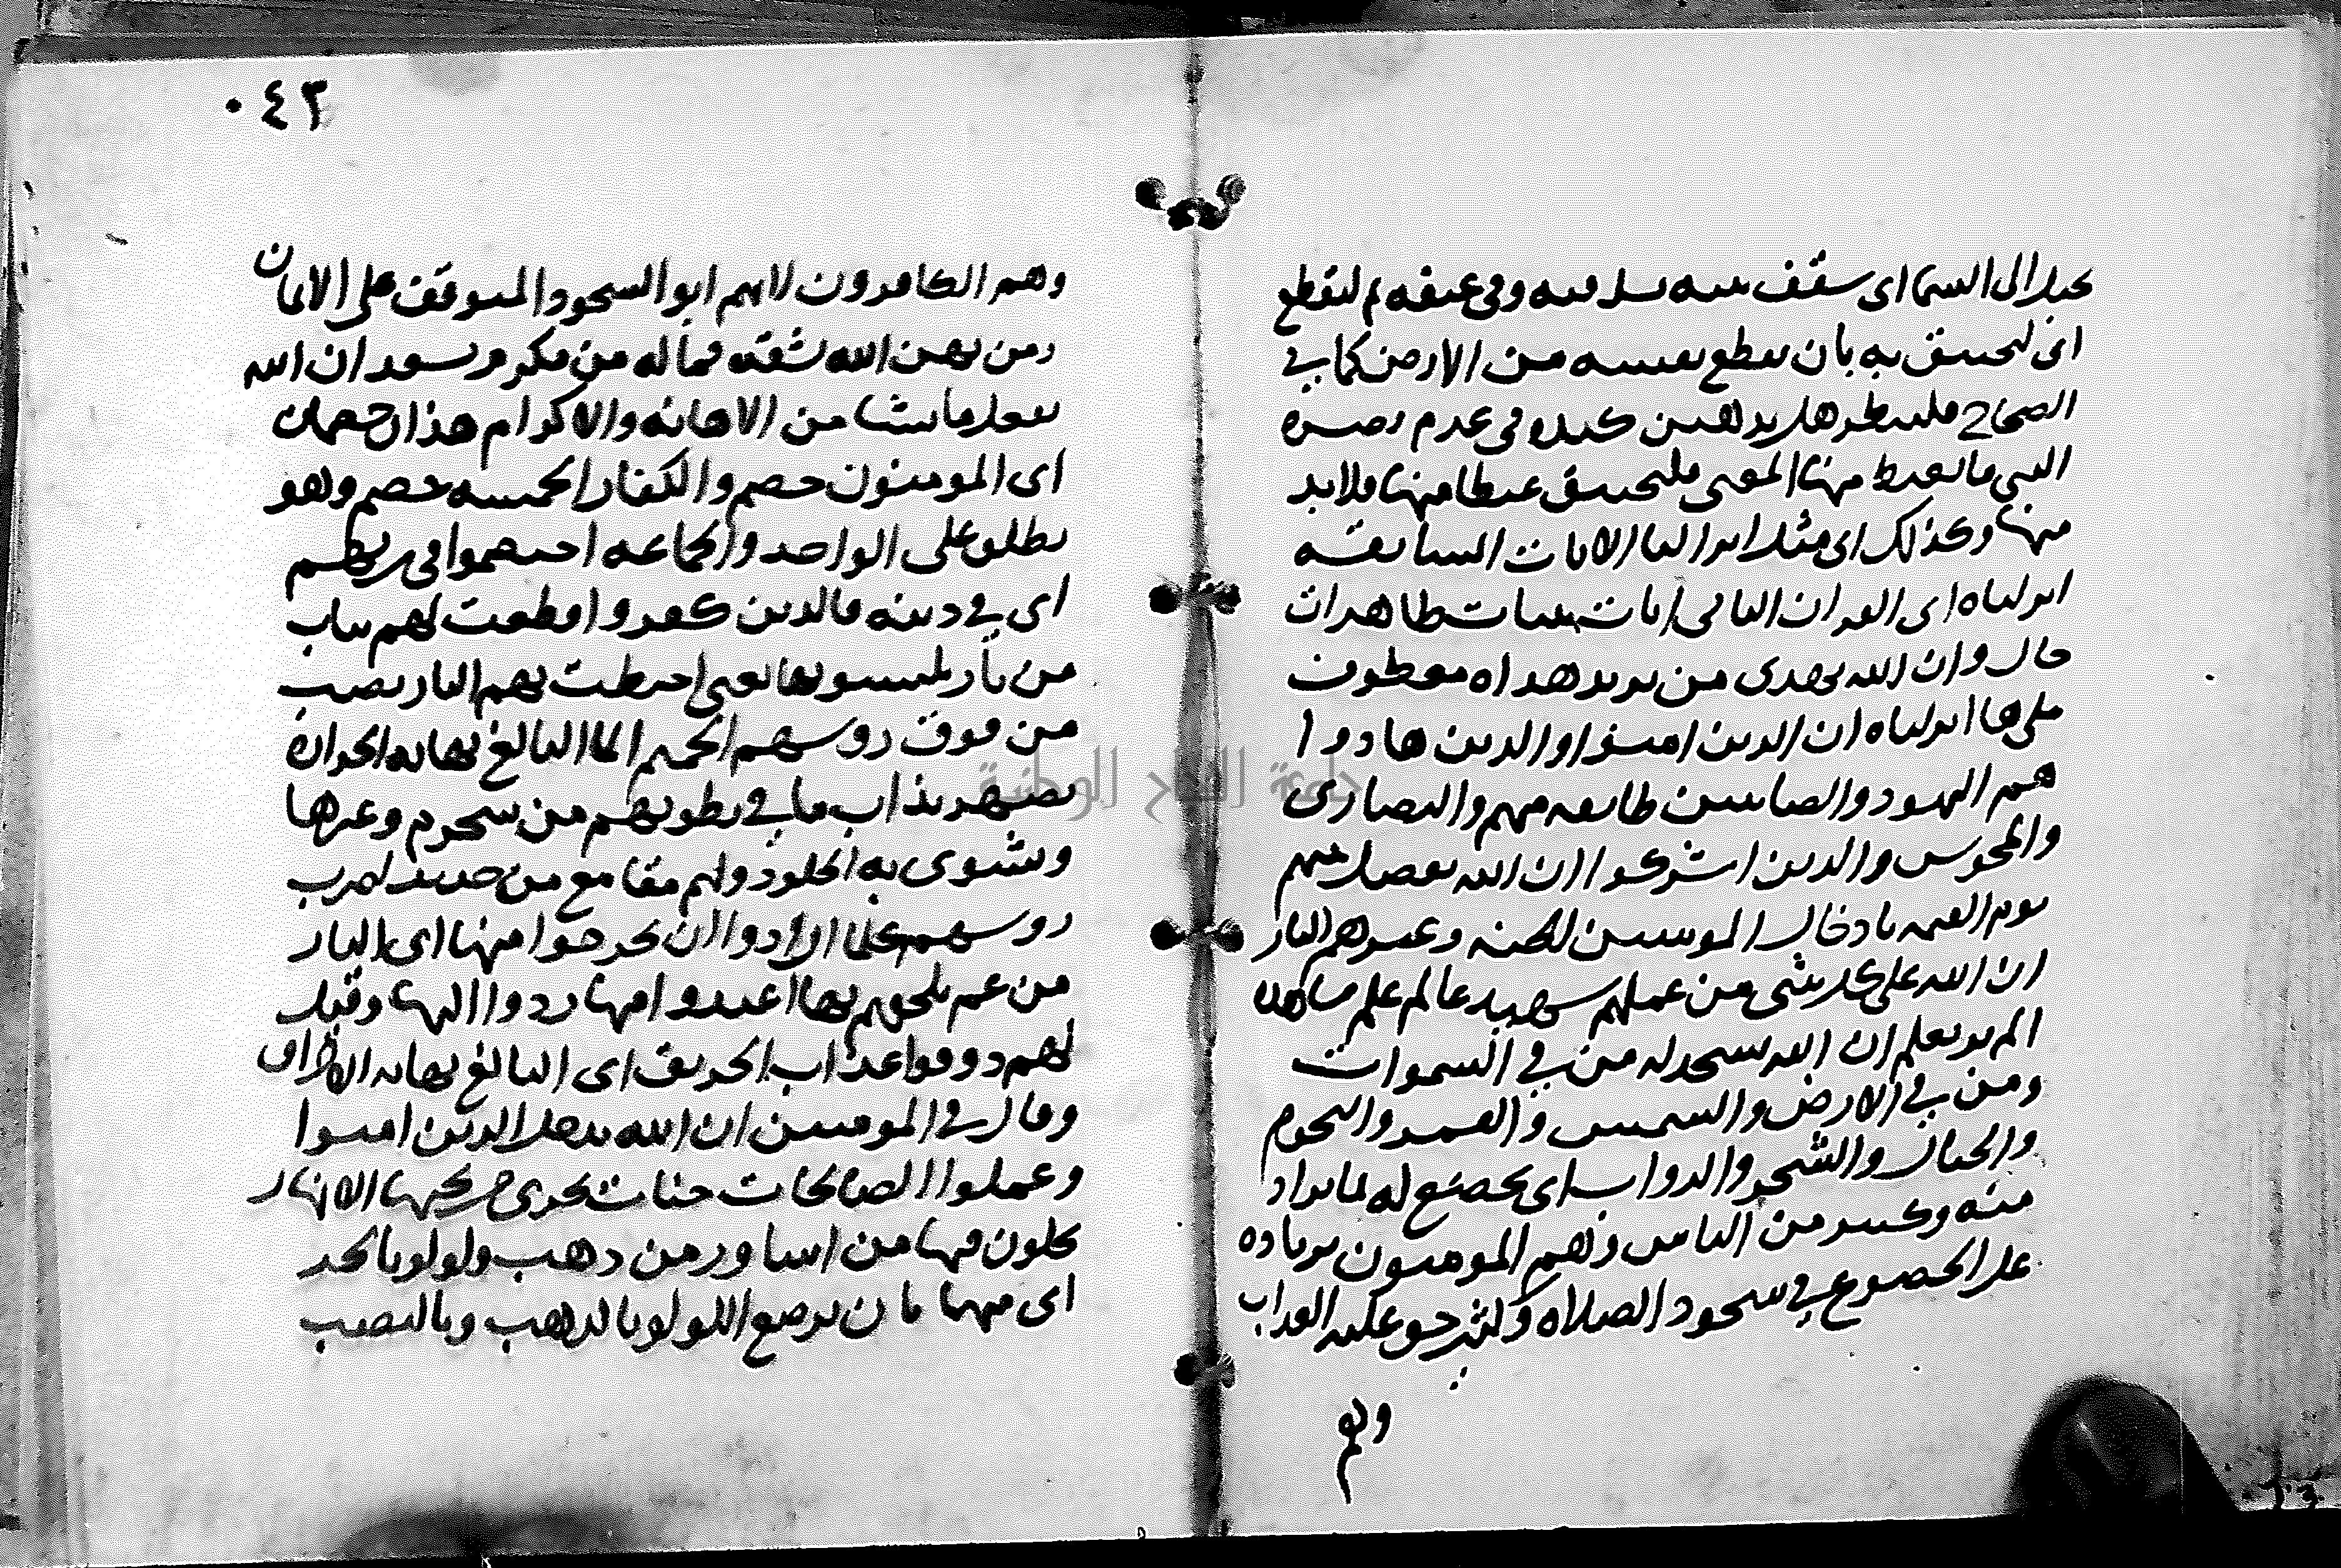 بحبل الى السما اى سقف بيته يشده فيه وفى عنقه ثم ليقطع
اى ليختنق به بان يقطع نفسه من الارض كما فى
الصحاح فلينظر هل يذهبن كيده فى عدم نصره
النبى ما يغيظ منها المعنى فليختنق غيظا منها فلا بد
منها وكذلك اى مثل انزالنا الايات السابقة
انزلناه اى القران الباقى ايات بينات ظاهرات
حال وان الله يهدى من يريد هداه معطوف
على ها انزلناه ان الذين امنوا والذين هادوا
هم اليهود والصابئين طائفه منهم والنصارى
والمجوس والذين اشركوا ان الله يفصل بينهم
يوم القيمه بادخال المومنين الجنه وغيرهم النار
ان الله على كل شى من عملهم شهيد عالم علم مشاهدة
الم تر تعلم ان الله يسجد له من في السموات
ومن في الارض والشمس والقمر والنجوم
والجبال والشجر والدواب اى يخضع له لما يراد
منه وكثير من الناس وهم المومنون بزيادة
على الخضوع في سجود الصلاة وكثير حق عليه العذاب
ولهم
٠٤٣
وهم الكافرون لانهم ابوا السجود المتوقف على الايمان
ومن يهن الله يشقه فما له من مكرم مسعد ان الله
يفعل ما يشا من الاهانه والاكرام هذان خصمان
اى المومنون خصم والكفار الخمسه خصم وهو
يطلق على الواحد والجماعه اختصموا فى ربهم
اى في دينه فالذين كفروا قطعت لهم ثياب
من نار يلبسونها يعنى احيطت بهم النار يصب
من فوق روسهم الحميم الما البالغ نهايه الحرارة
يصهر يذاب ما في بطونهم من شحوم وغيرها
وتشوى به الجلود ولهم مقامع من حديد لضرب
روسهم كلما ارادوا ان يخرجوا منها اى النار
من غم يلحقهم بها اعيدوا فيها ردوا اليها وقيل
لهم ذوقوا عذاب الحريق اى البالغ نهايه الاحراق
وقال في المومنين ان الله يدخل الذين امنوا
وعملوا الصالحات جنات تجرى من تحتها الانهار
يحلون فيها من اساور من ذهب ولولو بالجر
اى منهما بان يرصع اللولو بالذهب وبالنصب
جامعة النجاح الوطنية